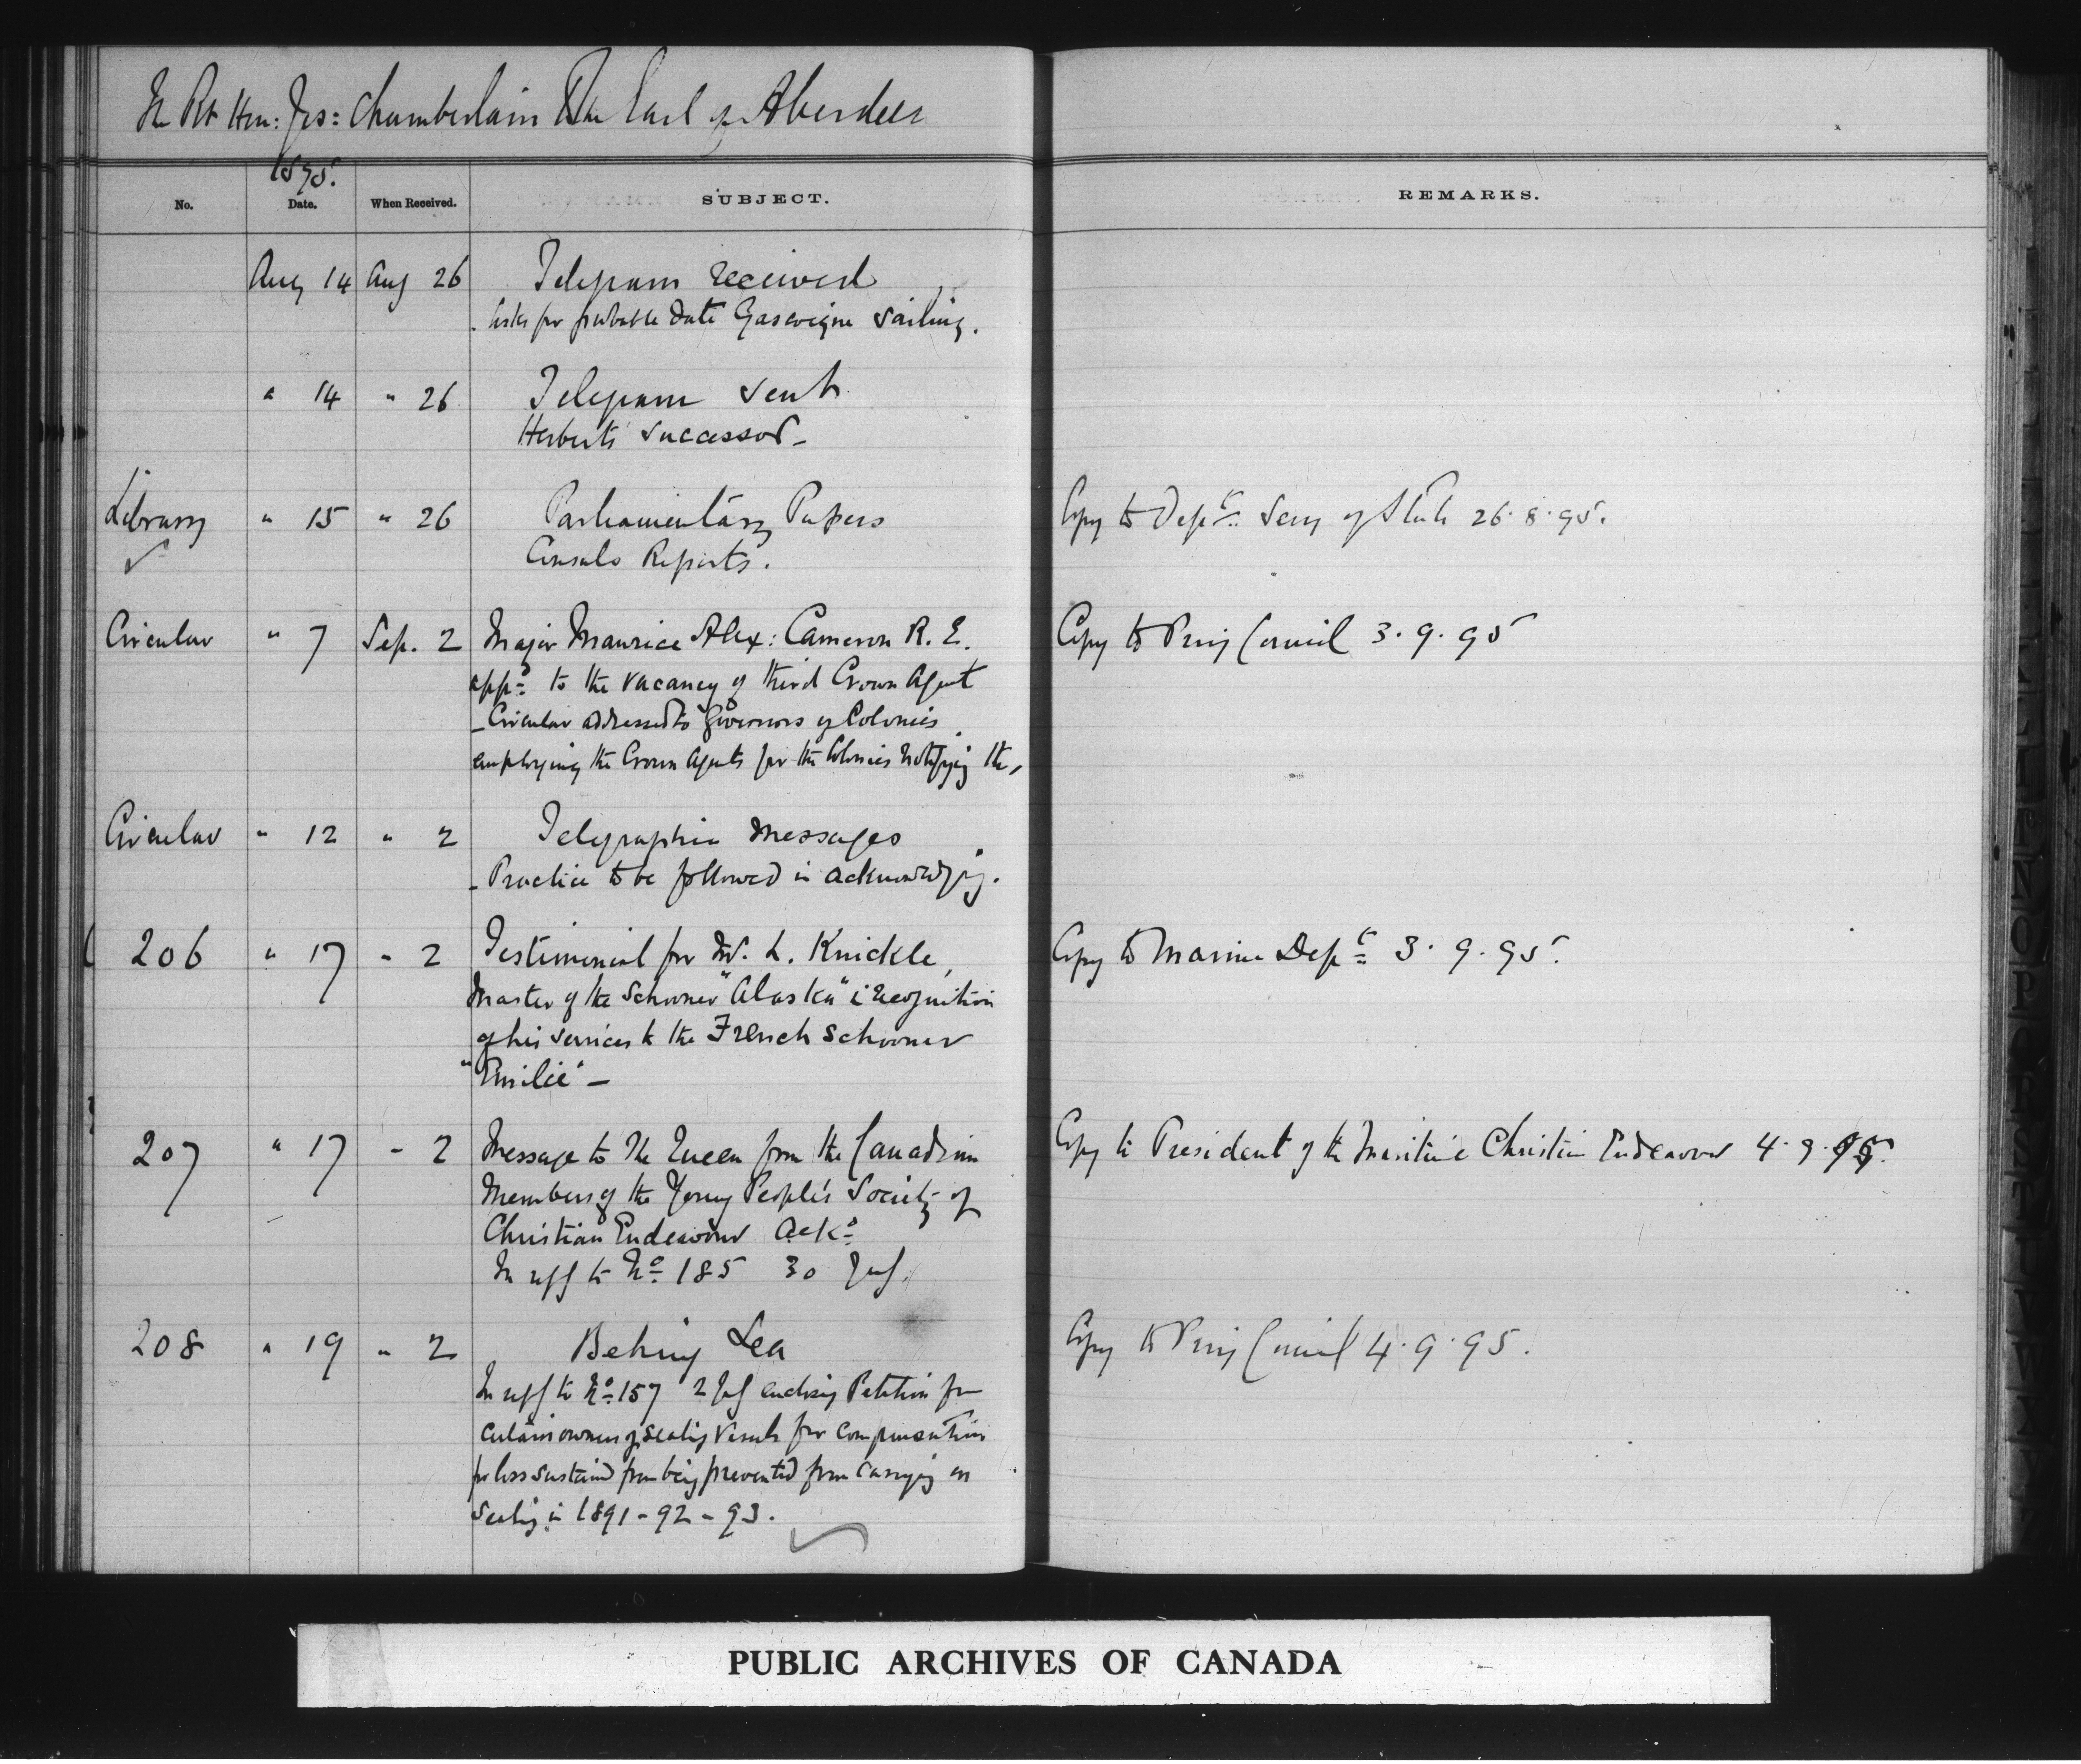 The Rt Hon: Jos: Chamberlain To The Earl of Aberdeen
1895.
No. Date. When Received. SUBJECT. REMARKS.
Aug 14 Aug 26 Telegram received
Asks for probable date Gascoigne sailing.
" 14 " 26 Telegram sent
Herberts' successor -
Library " 15 " 26 Parliamentary Papers Copy to Dept. Secy of State 26.8.95.
Consuls Reports.
Circular " 7 Sep. 2 Major Maurice Alex: Cameron R. E. Copy to Privy Council 3.9.95
appd to the vacancy of third Crown Agent
- Circular addressed to Governors of Colonies
employing the Crown Agents for the Colonies notifying the,
Circular " 12 " 2 Telegraphic Messages
- Practice to be followed in acknowledging.
206 " 17 " 2 Testimonial for Mr. L. Knickle, Copy to Marine Dept 3.9.95.
Master of the Schooner "Alaska" i recognition
of his services to the French Schooner
"Emilie" -
207 " 17 " 2 Message to The Queen from the Canadian Copy to President of the Maritime Christian Endeavour 4.9.95.
Members of the Young People's Society of
Christian Endeavour Ackd
In reff to No. 185 30 July.
208 " 19 " 2 Behring Sea Copy to Privy Council 4.9.95.
In reff to No. 157 2 July enclosing Petition from
certain owners of sealing vessels for compensation
for loss sustained from being prevented from carrying on
sealing in 1891-92-93.
PUBLIC ARCHIVES OF CANADA